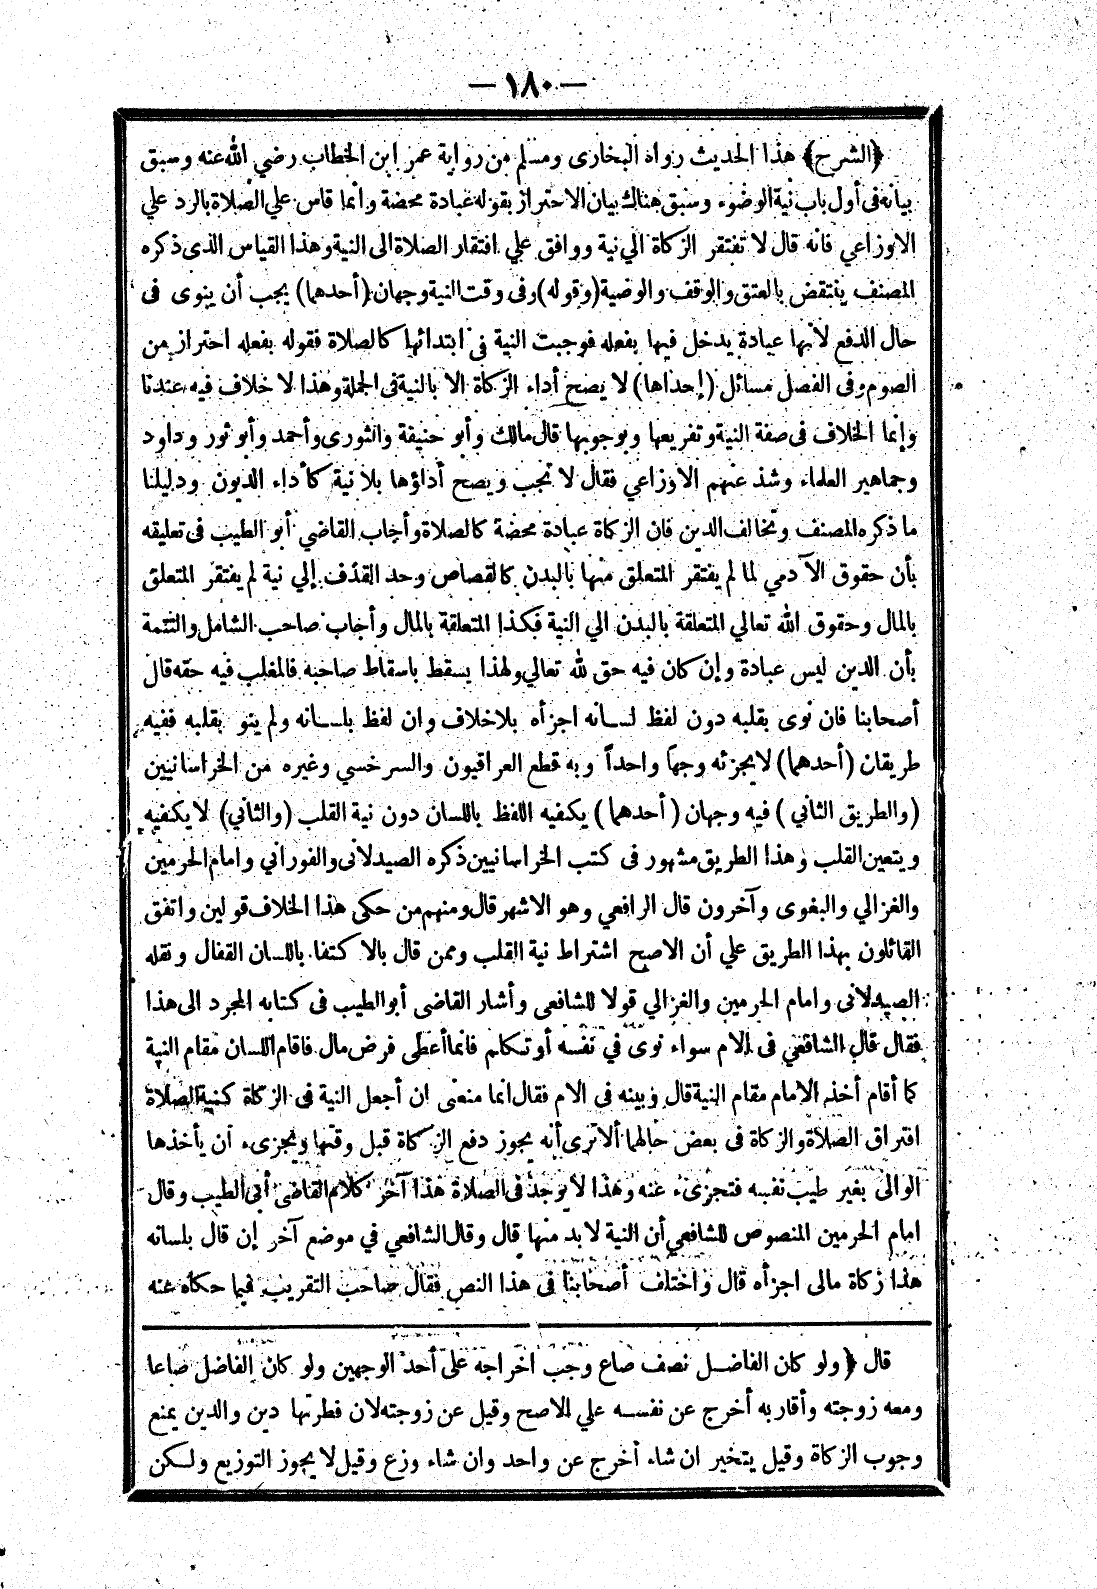 — ١٨٠ —
﴿الشرح﴾ هذا الحديث رواه البخارى ومسلم من رواية عمر ابن الخطاب رضي الله عنه وسبق
بيانه فى أول باب نية الوضوء وسبق هناك بيان الاحتراز بقوله عبادة محضة وانما قاس علي الصلاة بالرد علي
الاوزاعي فانه قال لا تفتقر الزكاة الي نية ووافق علي افتقار الصلاة الى النية وهذا القياس الذى ذكره
المصنف ينتقض بالعتق والوقف والوصية (وقوله) وفى وقت النية وجهان (أحدهما) يجب أن ينوى فى
حال الدفع لانها عبادة يدخل فيها بفعله فوجبت النية فى ابتدائها كالصلاة فقوله بفعله احتراز من
الصوم وفى الفصل مسائل (إحداها) لا يصح أداء الزكاة الا بالنية فى الجملة وهذا لا خلاف فيه عندنا
وإنما الخلاف فى صفة النية وتفريعها وبوجوبها قال مالك وأبو حنيفة والثورى وأحمد وأبو ثور وداود
وجماهير العلماء وشذ عنهم الاوزاعي فقال لا تجب ويصح أداؤها بلا نية كأداء الديون ودليلنا
ما ذكره المصنف وتخالف الدين فان الزكاة عبادة محضة كالصلاة وأجاب القاضي أبو الطيب فى تعليقه
بأن حقوق الآدمي لما لم يفتقر المتعلق منها بالبدن كالقصاص وحد القذف إلي نية لم يفتقر المتعلق
بالمال وحقوق الله تعالي المتعلقة بالبدن الي النية فكذا المتعلقة بالمال وأجاب صاحب الشامل والتتمة
بأن الدين ليس عبادة وإن كان فيه حق لله تعالي ولهذا يسقط باسقاط صاحبه فالمغلب فيه حقه قال
أصحابنا فان نوى بقلبه دون لفظ لسانه اجزأه بلا خلاف وان لفظ بلسانه ولم ينو بقلبه ففيه
طريقان (أحدهما) لا يجزئه وجها واحداً وبه قطع العراقيون والسرخسي وغيره من الخراسانيين
(والطريق الثاني) فيه وجهان (أحدهما) يكفيه اللفظ باللسان دون نية القلب (والثاني) لا يكفيه
ويتعين القلب وهذا الطريق مشهور فى كتب الخراسانيين ذكره الصيدلانى والفوراني وامام الحرمين
والغزالي والبغوى وآخرون قال الرافعي وهو الاشهر قال ومنهم من حكى هذا الخلاف قولين واتفق
القائلون بهذا الطريق علي أن الاصح اشتراط نية القلب وممن قال بالاكتفاء باللسان القفال ونقله
الصيدلانى وامام الحرمين والغزالي قولا للشافعى وأشار القاضى أبو الطيب فى كتابه المجرد الى هذا
فقال قال الشافعي فى الام سواء نوى في نفسه أو تكلم فانما أعطى فرض مال فاقام اللسان مقام النية
كما أقام أخذ الامام مقام النية قال وبينه فى الام فقال انما منعنى ان أجعل النية فى الزكاة كنية الصلاة
افتراق الصلاة والزكاة فى بعض حالهما ألا ترى أنه يجوز دفع الزكاة قبل وقتها وتجزىء أن يأخذها
الوالى بغير طيب نفسه فتجزىء عنه وهذا لا يوجد فى الصلاة هذا آخر كلام القاضى أبى الطيب وقال
امام الحرمين المنصوص للشافعي أن النية لا بد منها قال وقال الشافعي في موضع آخر إن قال بلسانه
هذا زكاة مالى اجزأه قال واختلف أصحابنا فى هذا النص فقال صاحب التقريب فيما حكاه عنه
قال ﴿ولو كان الفاضل نصف صاع وجب اخراجه على أحد الوجهين ولو كان الفاضل صاعا
ومعه زوجته وأقاربه أخرج عن نفسه علي الاصح وقيل عن زوجته لان فطرتها دين والدين يمنع
وجوب الزكاة وقيل يتخير ان شاء أخرج عن واحد وان شاء وزع وقيل لا يجوز التوزيع ولكن